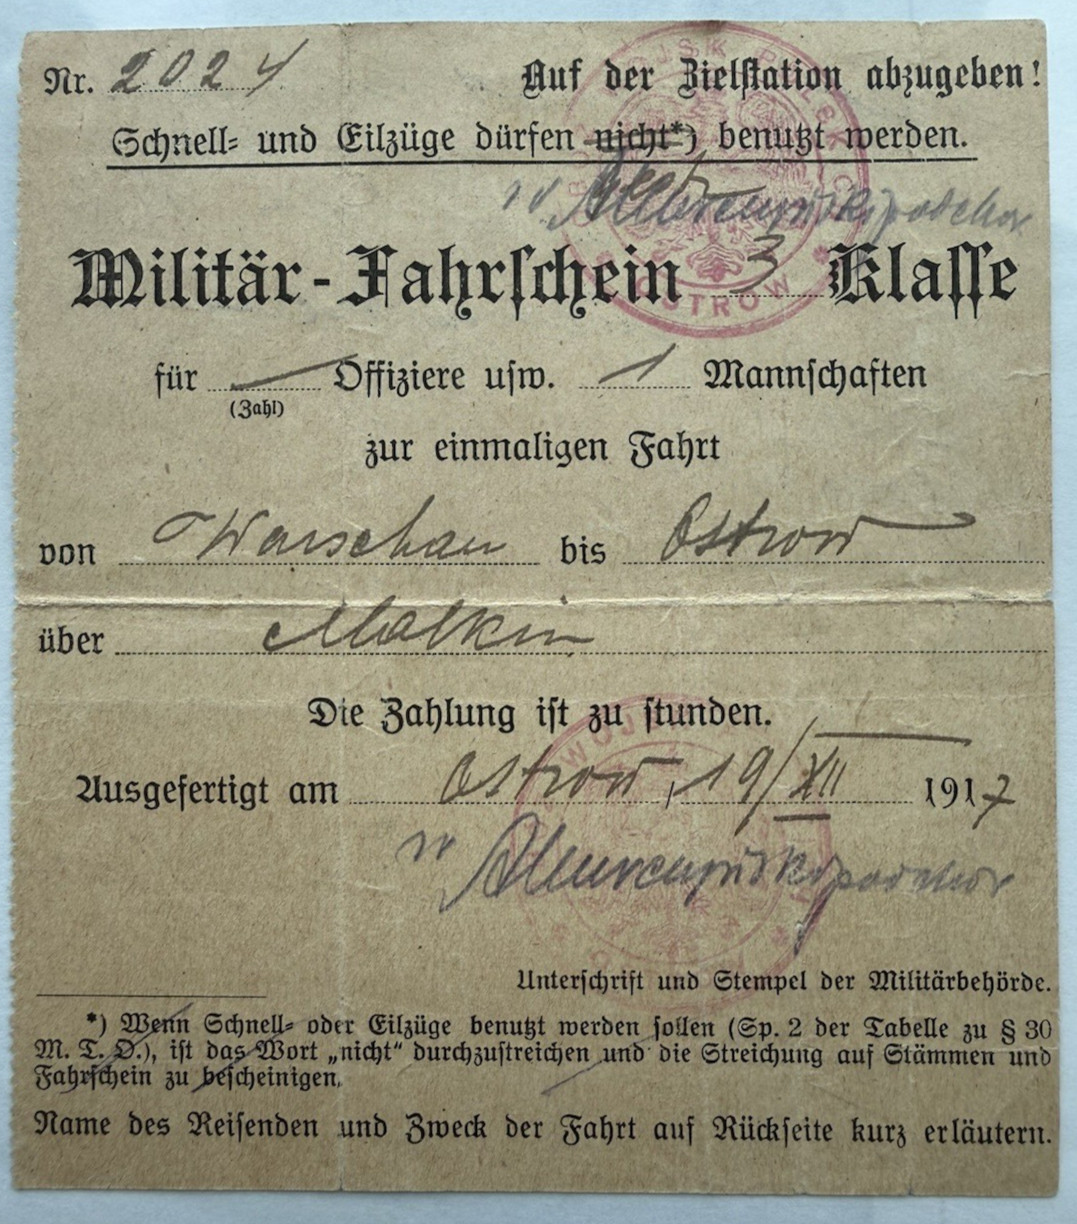 Nr. 2024 Auf der Zielstation abzugeben!
Schnell= und Eilzüge dürfen nicht*) benutzt werden.
Militär-Fahrschein 3 Klasse
für Offiziere usw. 1 Mannschaften
(Zahl)
zur einmaligen Fahrt
von Warschau bis Ostrow
über Malkin
Die Zahlung ist zu stunden.
Ausgefertigt am Ostrow, 19/XII 1917
Unterschrift und Stempel der Militärbehörde.
*) Wenn Schnell= oder Eilzüge benutzt werden sollen (Sp. 2 der Tabelle zu § 30
M. T. O.), ist das Wort „nicht“ durchzustreichen und die Streichung auf Stämmen und
Fahrschein zu bescheinigen.
Name des Reisenden und Zweck der Fahrt auf Rückseite kurz erläutern.
OSTROW